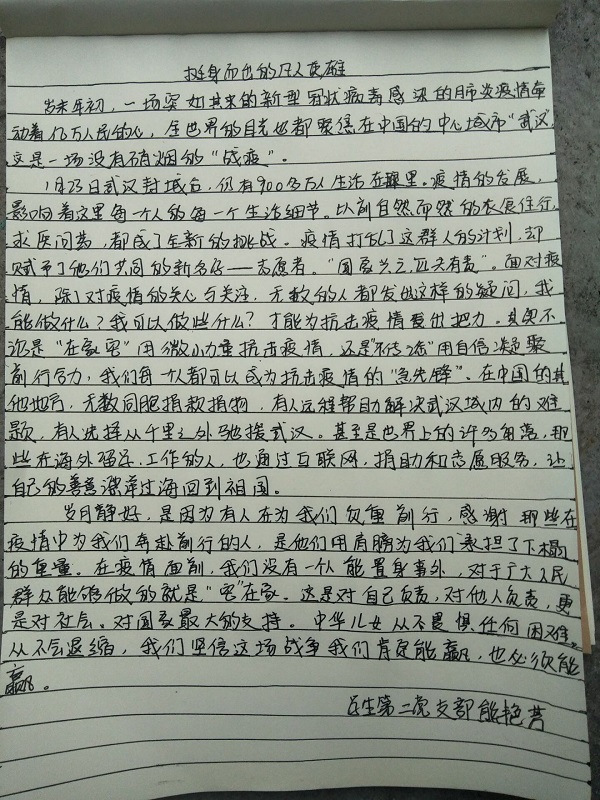 挺身而出的凡人英雄
岁末年初，一场突如其来的新型冠状病毒感染的肺炎疫情牵
动着亿万人民的心，全世界的目光也都聚焦在中国的中心城市"武汉"
这是一场没有硝烟的"战疫"。
1月23日武汉封城后，仍有900多万人生活在哪里。疫情的发展，
影响着这里每一个人的每一个生活细节。以前自然而然的衣食住行，
求医问药，都成了全新的挑战。疫情打乱了这群人的计划，却
赋予了他们共同的新名字——志愿者。"国家兴亡匹夫有责"。面对疫
情，除了对疫情的关心与关注，无数的人都发出这样的疑问，我
能做什么？我可以做些什么？才能为抗击疫情出把力。其实不
论是"在家宅"用微小力量抗击疫情，还是"不传谣"用自信凝聚
前行合力，我们每一个人都可以成为抗击疫情的"急先锋"。在中国的其
他地方，无数同胞捐款捐物，有人远程帮助解决武汉城内的难
题，有人选择从千里之外驰援武汉。甚至是世界上的许多角落，那
些在海外留学、工作的人，也通过互联网，捐助和志愿服务，让
自己的善意漂洋过海回到祖国。
岁月静好，是因为有人在为我们负重前行，感谢那些在
疫情中为我们奔赴前行的人，是他们用肩膀为我们承担了下
的重量。在疫情面前，我们没有一个人能置身事外，对于广大人民
群众能够做的就是"宅"在家。这是对自己负责，对他人负责，更
是对社会、对国家最大的支持。中华儿女从不畏惧任何困难，
从不会退缩，我们坚信这场战争我们肯定能赢，也必须能
赢。
民生第二党支部熊艳芳